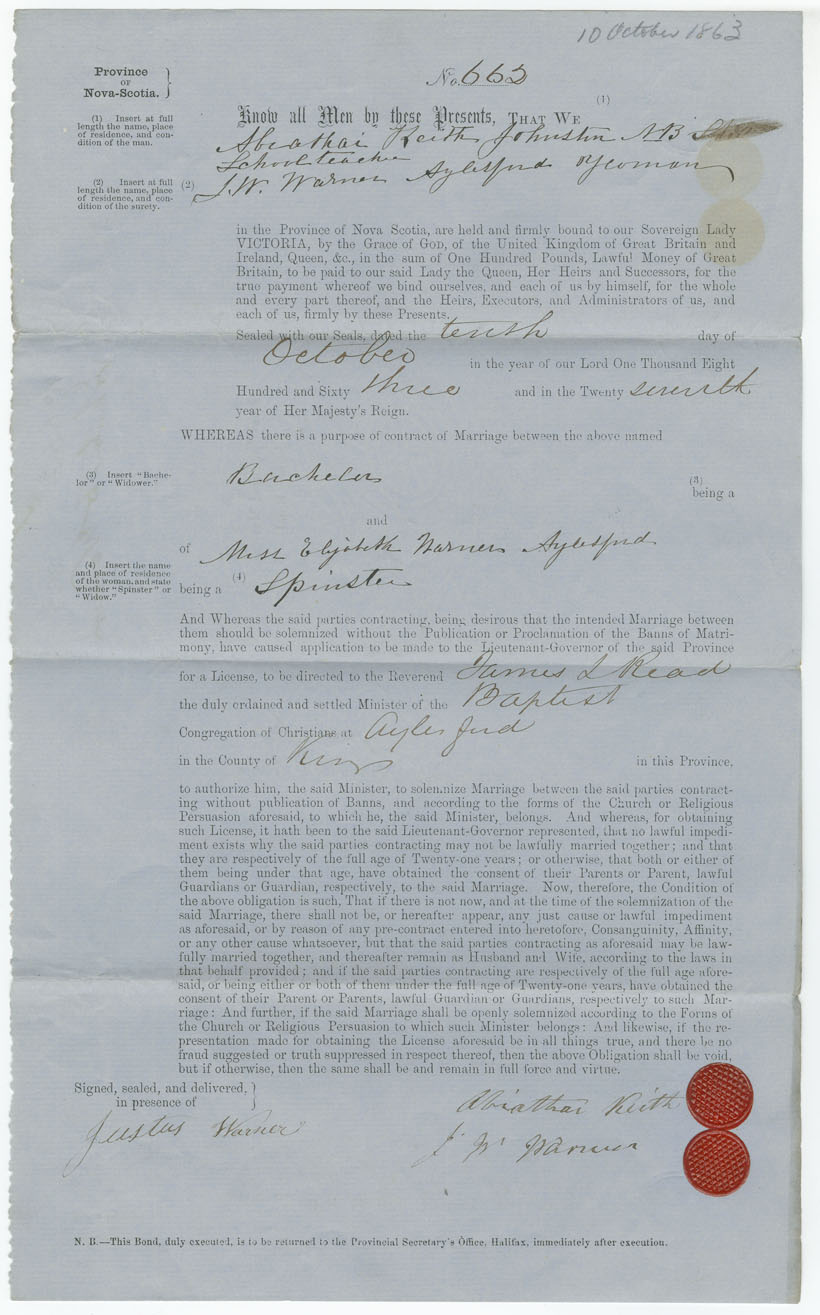 10 October 1863
Province
OF
Nova-Scotia.
No. 663
(1)
(1) Insert at full
length the name, place
of residence, and con-
dition of the man.
Know all Men by these Presents, THAT WE
Abiathar Keith Johnston N B
School teacher
(2) Insert at full
length the name, place
of residence, and con-
dition of the surety.
(2) J. W. Warner Aylesford Yeoman
in the Province of Nova Scotia, are held and firmly bound to our Sovereign Lady
VICTORIA, by the Grace of GOD, of the United Kingdom of Great Britain and
Ireland, Queen, &c., in the sum of One Hundred Pounds, Lawful Money of Great
Britain, to be paid to our said Lady the Queen, Her Heirs and Successors, for the
true payment whereof we bind ourselves, and each of us by himself, for the whole
and every part thereof, and the Heirs, Executors, and Administrators of us, and
each of us, firmly by these Presents.
Sealed with our Seals, dated the tenth day of
October in the year of our Lord One Thousand Eight
Hundred and Sixty three and in the Twenty seventh
year of Her Majesty's Reign.
WHEREAS there is a purpose of contract of Marriage between the above named
(3) Insert "Bache-
lor" or "Widower."
Bachelor
(3)
being a
and
of Miss Elizabeth Warner Aylesford
(4) Insert the name
and place of residence
of the woman, and state
whether "Spinster" or
"Widow."
being a (4) Spinster
And Whereas the said parties contracting, being desirous that the intended Marriage between
them should be solemnized without the Publication or Proclamation of the Banns of Matri-
mony, have caused application to be made to the Lieutenant-Governor of the said Province
for a License, to be directed to the Reverend James L Read
the duly ordained and settled Minister of the Baptist
Congregation of Christians at Aylesford
in the County of Kings in this Province,
to authorize him, the said Minister, to solemnize Marriage between the said parties contract-
ing without publication of Banns, and according to the forms of the Church or Religious
Persuasion aforesaid, to which he, the said Minister, belongs. And whereas, for obtaining
such License, it hath been to the said Lieutenant-Governor represented, that no lawful impedi-
ment exists why the said parties contracting may not be lawfully married together; and that
they are respectively of the full age of Twenty-one years; or otherwise, that both or either of
them being under that age, have obtained the consent of their Parents or Parent, lawful
Guardians or Guardian, respectively, to the said Marriage. Now, therefore, the Condition of
the above obligation is such, That if there is not now, and at the time of the solemnization of the
said Marriage, there shall not be, or hereafter appear, any just cause or lawful impediment
as aforesaid, or by reason of any pre-contract entered into heretofore, Consanguinity, Affinity,
or any other cause whatsoever, but that the said parties contracting as aforesaid may be law-
fully married together, and thereafter remain as Husband and Wife, according to the laws in
that behalf provided; and if the said parties contracting are respectively of the full age afore-
said, or being either or both of them under the full age of Twenty-one years, have obtained the
consent of their Parent or Parents, lawful Guardian or Guardians, respectively to such Mar-
riage: And further, if the said Marriage shall be openly solemnized according to the Forms of
the Church or Religious Persuasion to which such Minister belongs: And likewise, if the re-
presentation made for obtaining the License aforesaid be in all things true, and there be no
fraud suggested or truth suppressed in respect thereof, then the above Obligation shall be void,
but if otherwise, then the same shall be and remain in full force and virtue.
Signed, sealed, and delivered,
in presence of
Justus Warner
Abiathar Keith
J W Warner
N. B.—This Bond, duly executed, is to be returned to the Provincial Secretary's Office, Halifax, immediately after execution.